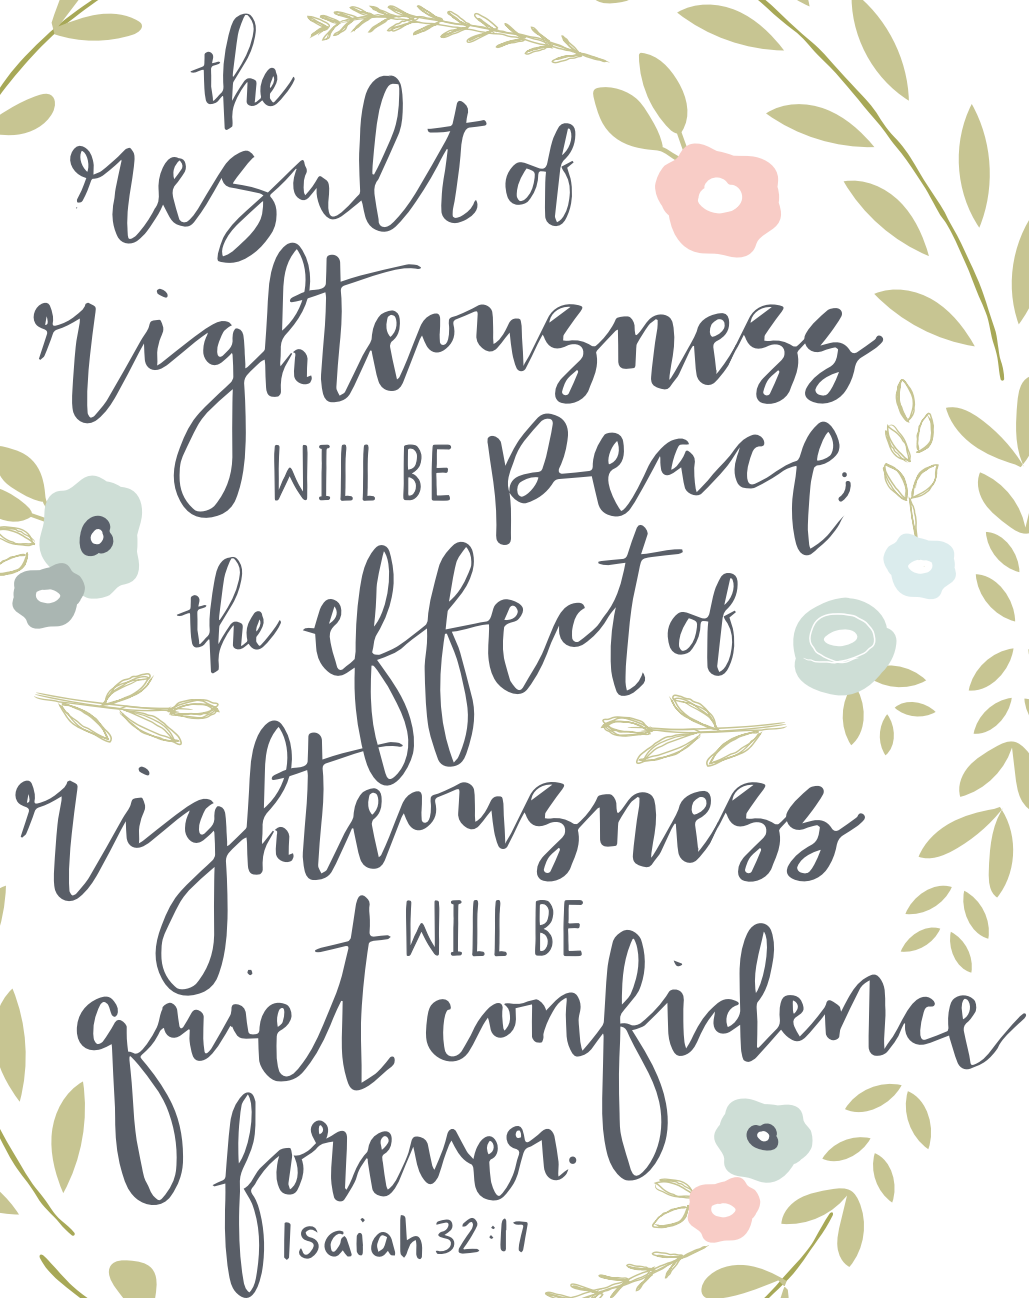 the
result of
righteousness
WILL BE peace;
the effect of
righteousness
WILL BE
quiet confidence
forever.
Isaiah 32:17